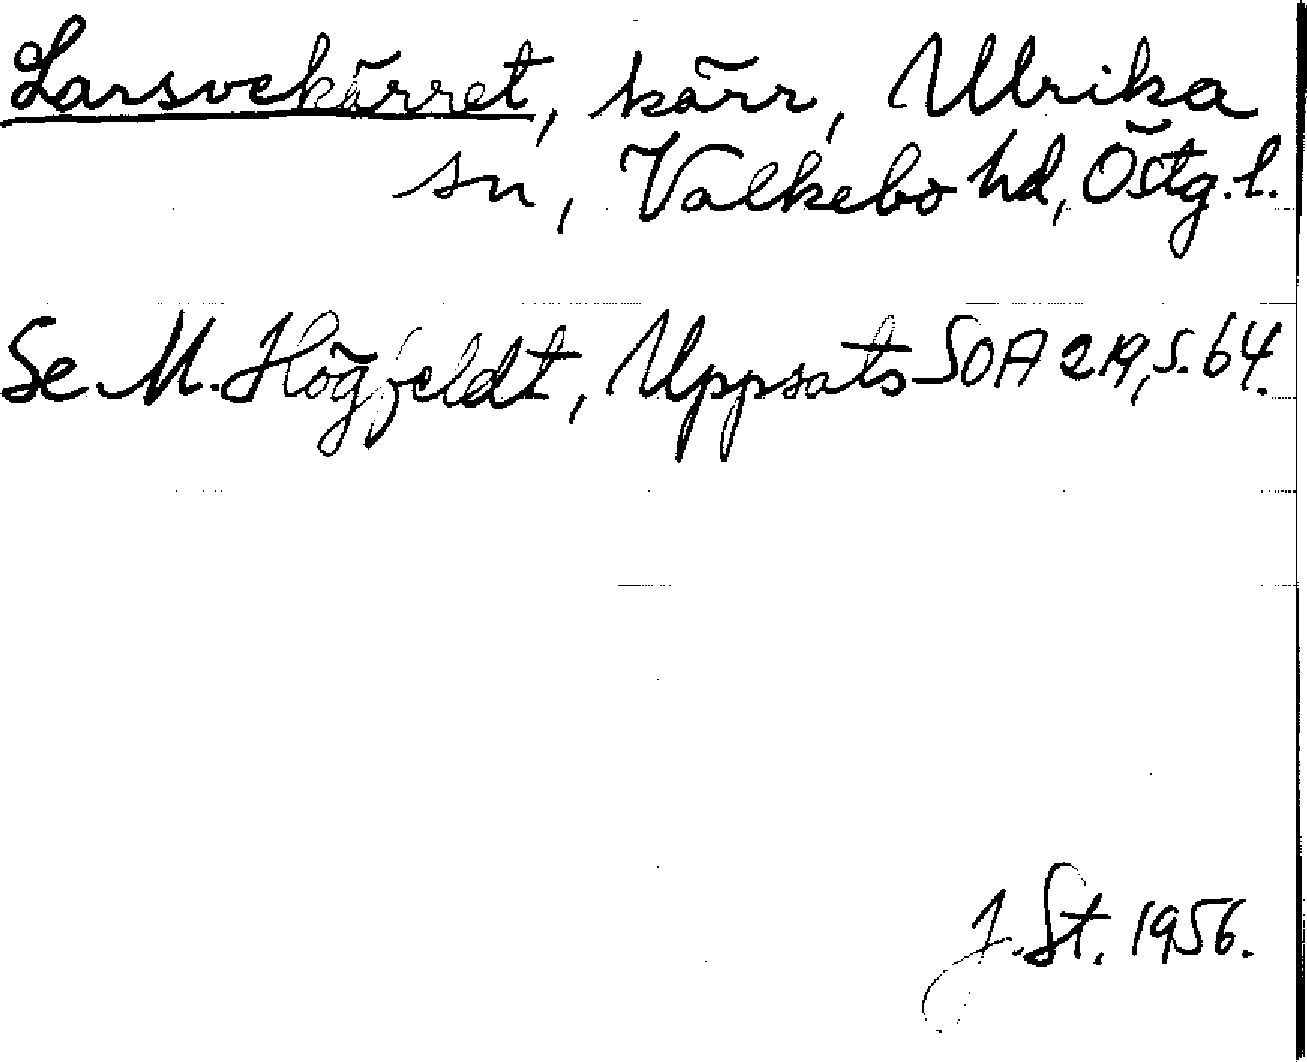 Larsvekärret, kärr, Ulrika
sn, Valkebo hd, Östg.l.
Se M. Högfeldt, Uppsats SOA 219, s. 64.
J. St. 1956.